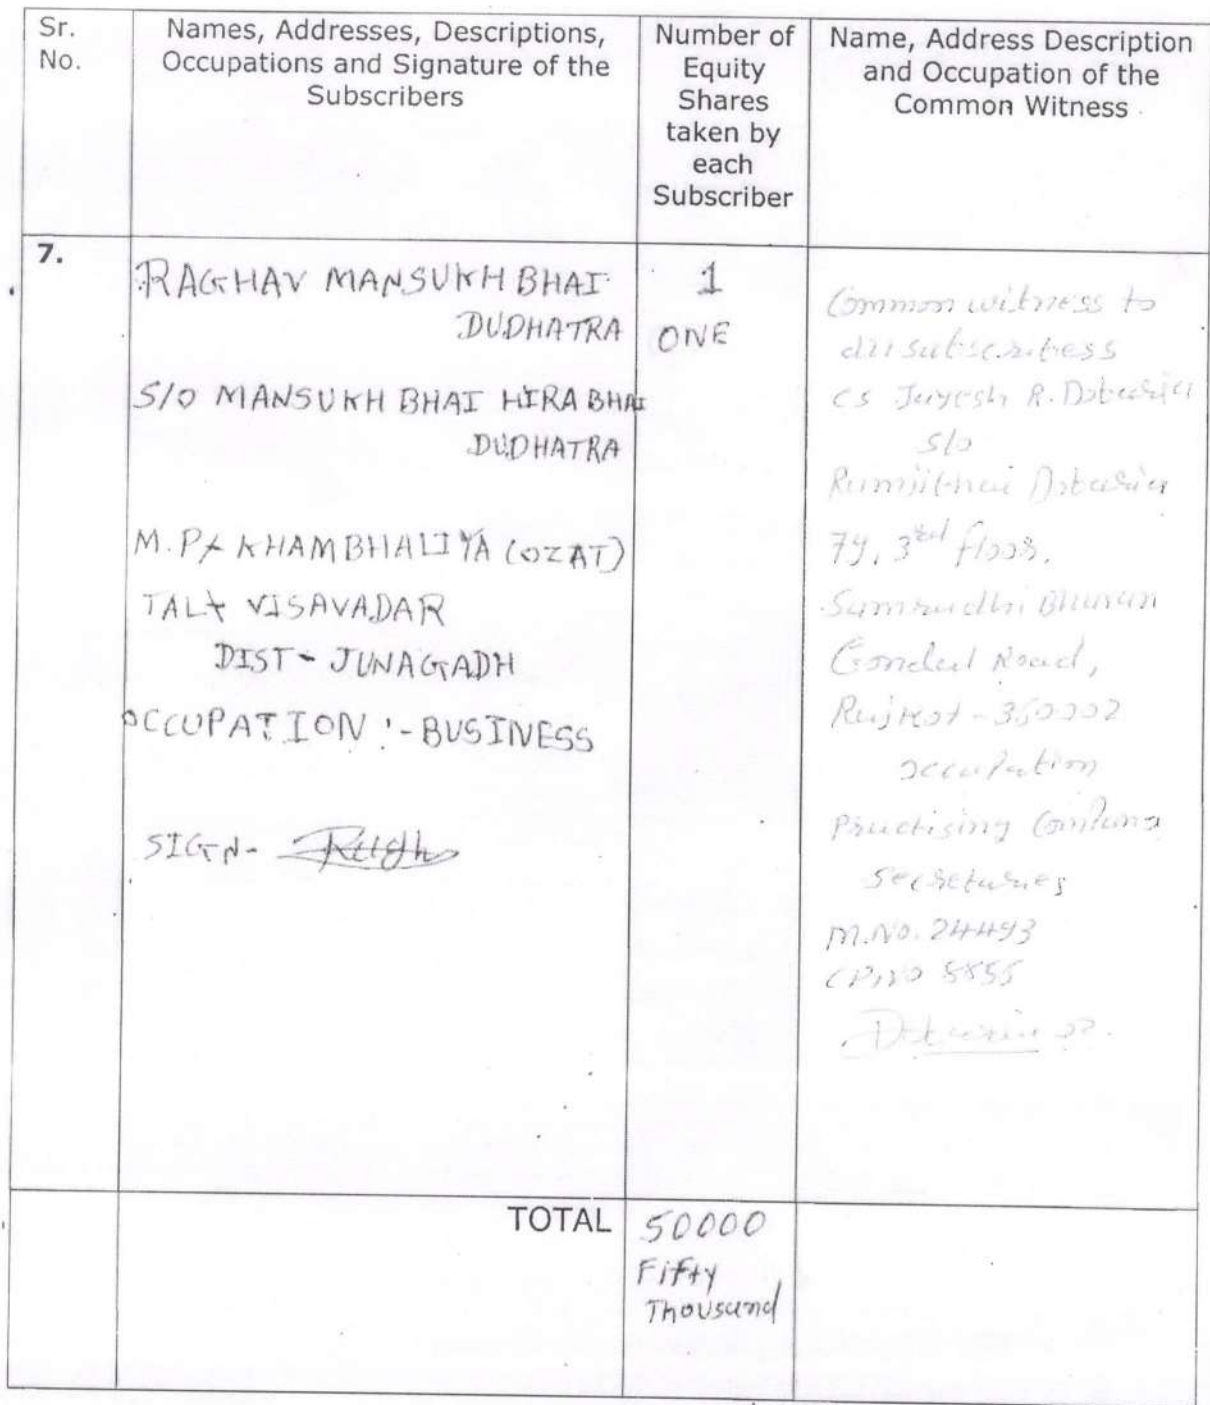 Sr.
No.
Names, Addresses, Descriptions,
Occupations and Signature of the
Subscribers
Number of
Equity
Shares
taken by
each
Subscriber
Name, Address Description
and Occupation of the
Common Witness
7.
RAGHAV MANSUKHBHAI
DUDHATRA
S/O MANSUKHBHAI HIRABHAI
DUDHATRA
M.P/ KHAMBHALIYA (OZAT)
TAL VISAVADAR
DIST - JUNAGADH
OCCUPATION :- BUSINESS
SIGN-
1
ONE
Common witness to
all subscribers
CS Jayesh R. Dobaria
S/o
Ramjibhai Dobaria
3rd floor,
Samrudhi Bhavan
Gondal Road,
Rajkot - 360002
occupation
Practising Company
Secretaries
M.NO. 24493
CP.NO
TOTAL
50000
Fifty
Thousand